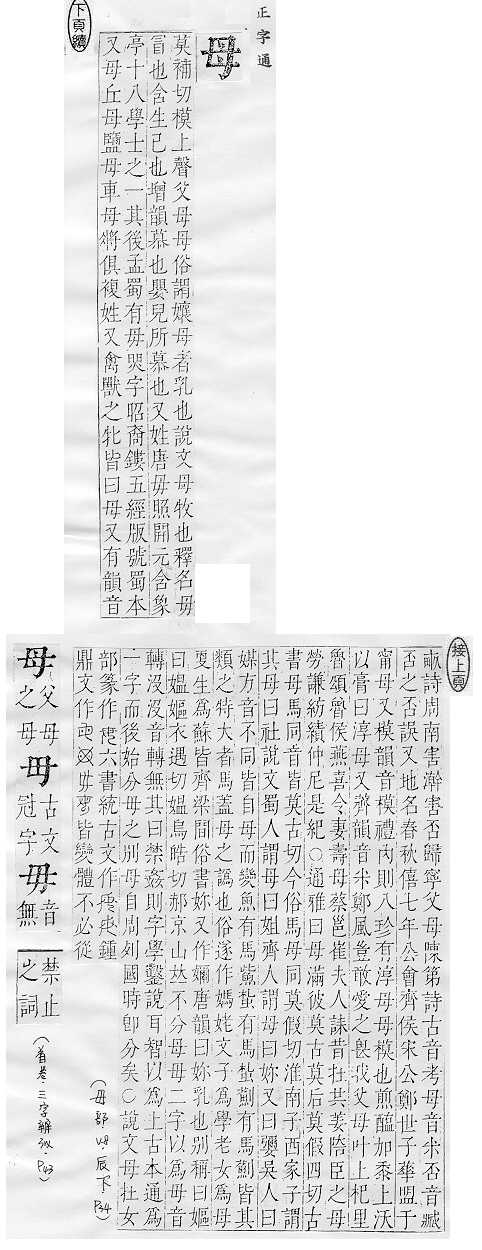 正字通
母
莫補切模上聲父母母俗謂孃母者乳也說文母牧也釋名母
冒也含生己也增韻慕也嬰兒所慕也又姓唐毋照開元含象
亭十八學士之一其後孟蜀有毋煚字昭裔鏤五經版號蜀本
又母丘母鹽母車母將俱複姓又禽獸之牝皆曰母又有韻音
下頁續
接上頁
畞詩周南害澣害否歸寧父母陳第詩古音考母音米否音
否之否誤又地名春秋僖七年公會齊侯宋公鄭世子華盟于
甯母又模韻音模禮內則八珍有淳母母模也煎醢加黍上沃
以膏曰淳母又齊韻音米鄭風豈敢愛之畏我父母叶上杞里
魯頌魯侯燕喜令妻壽母蔡邕崔夫人誄昔在共姜陪臣之母
勞謙紡績仲尼是紀○通雅曰母滿彼莫古莫后莫假四切古
書母馬同音皆莫古切今俗馬母同莫假切淮南子西家子謂
其母曰社說文蜀人謂母曰姐齊人謂母曰㜷又曰㜑吳人曰
媒方音不同皆自母而變魚有馬鮆蚩有馬蚩薊有馬薊皆其
類之特大者馬蓋母之譌也俗遂作媽姥文子為學老女為母
更生為蘇皆齊梁間俗書㜷又作嬭唐韻曰㜷乳也別稱曰嫗
曰媼嫗衣遇切媼烏皓切郝京山𠀤不分母毋二字以為母音
轉沒沒音轉無其曰禁姦則字學鑿說耳智以為上古本通為
一字而後始分毋之別母自周列國時卽分矣○說文母在女
部篆作六書統古文作鍾
鼎文作皆變體不必從
母父母之母
毋古文冠字
毋音無禁止之詞
(母部 四 辰下. P34)
(首卷.三字辨似. P43)